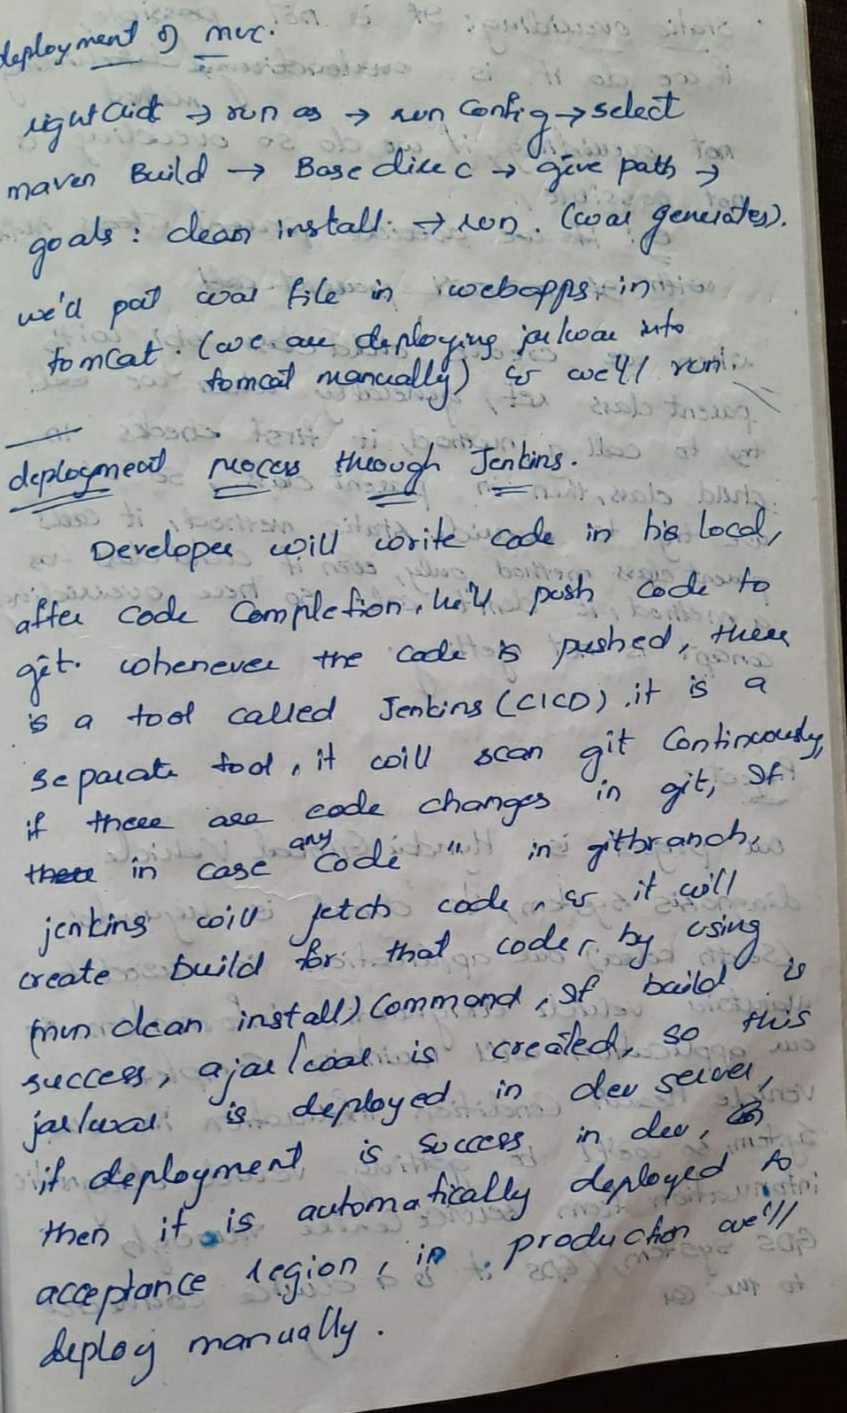 deployment of mvc.
right click → run as → run Config → select
maven Build → Base direc → give path →
goals : clean install → run. (war generates).
we'll put war file in webapps in
tomcat. (we are deploying jar/war into
tomcat manually) & we'll run.
deployment process through Jenkins.
Developer will write code in his local,
after code completion, he'll push code to
git. whenever the code is pushed, there
is a tool called Jenkins (CICD). it is a
separate tool, it will scan git continuously,
if there are code changes in git, If
there in case any code " in gitbranch,
jenkins will fetch code, & it will
create build for that code, by using
(mvn clean install) Command, If build is
success, a jar/war is created, so this
jar/war is deployed in dev server,
if deployment is success in dev,
then it is automatically deployed to
acceptance region, in production we'll
deploy manually.